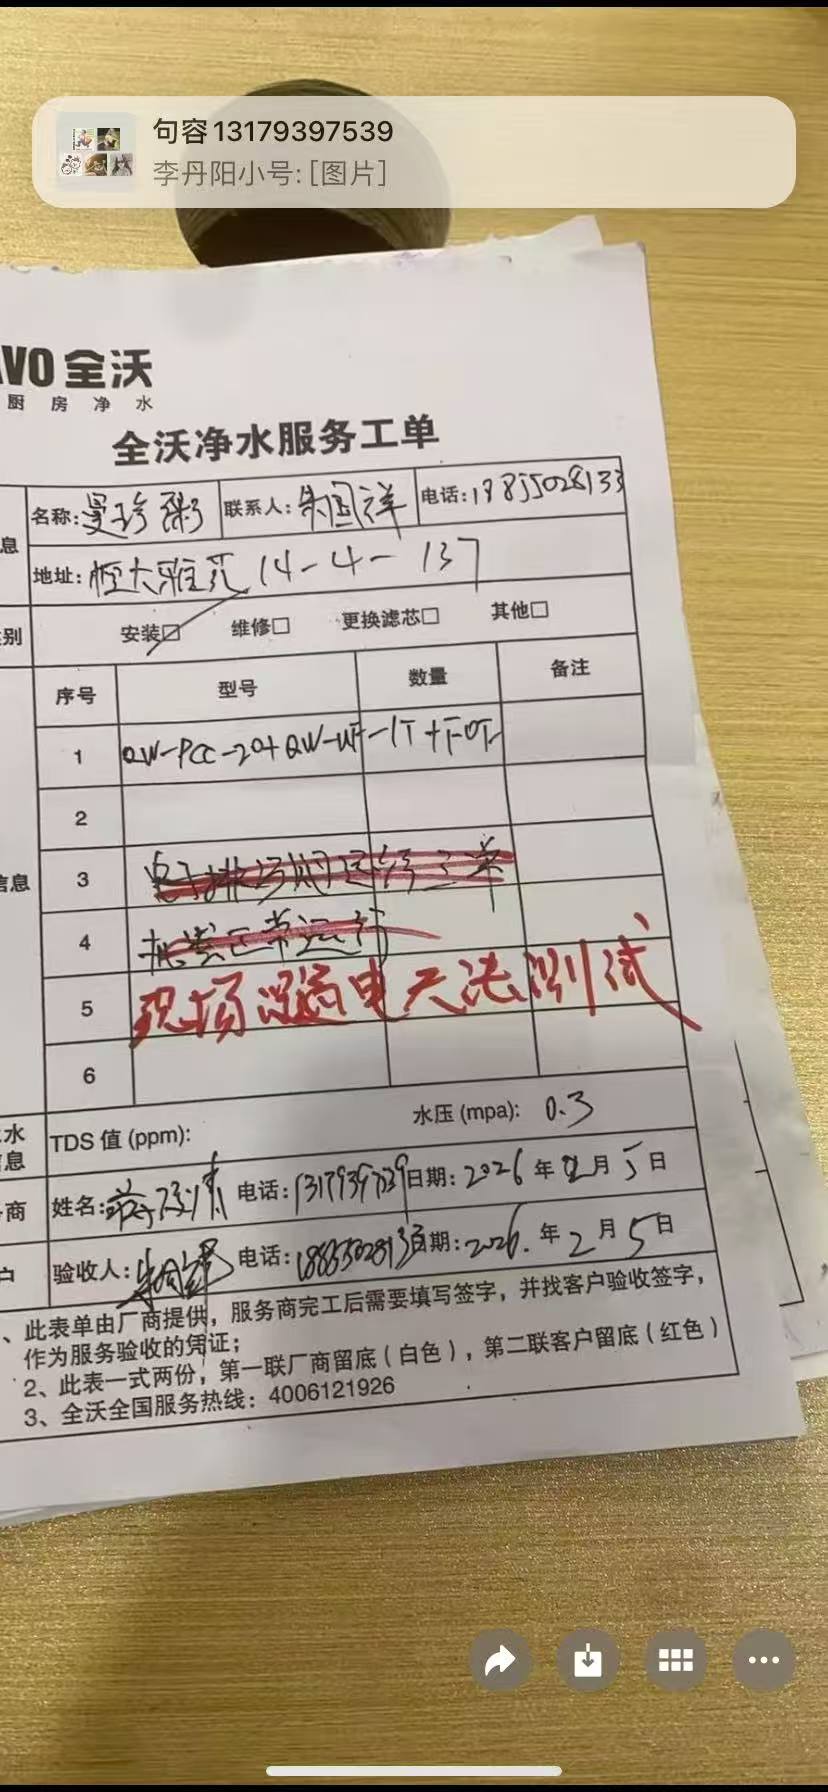 句容13179397539
李丹阳小号:[图片]
VO 全沃
厨房净水
全沃净水服务工单
息
名称:曼玲粥 联系人:朱国祥 电话:19855028133
地址:恒大雅苑 14-4-137
别
安装□ 维修□ 更换滤芯□ 其他□
序号 型号 数量 备注
1 QW-PCC-20+QW-UF-1T+
2
信息
3
4 机器正常运行
5 现场漏电无法测试
6
水
信息
TDS 值 (ppm): 水压 (mpa): 0.3
商
姓名: 电话: 日期:2026年2月5日
户
验收人:朱国祥 电话: 日期:2026.年2月5日
、此表单由厂商提供，服务商完工后需要填写签字，并找客户验收签字，
作为服务验收的凭证；
2、此表一式两份，第一联厂商留底（白色），第二联客户留底（红色）
3、全沃全国服务热线：4006121926